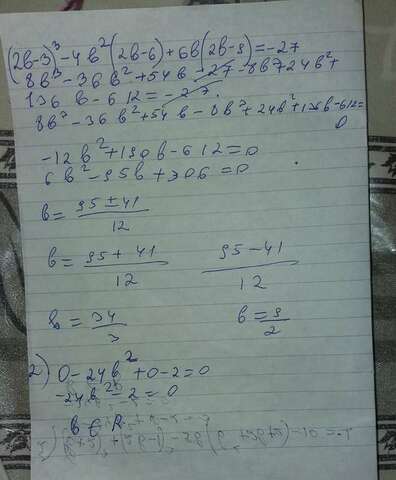 (2b-3)³-4b²(2b-6)+6b(2b-9)=-27
8b³-36b²+54b-27-8b³24b²+
136b-612=-27.
8b³-36b²+54b-8b³+24b²+136b-612=
0
-12b²+190b-612=0
6b²-95b+306=0
b=95±41/12
b=95+41/12 95-41/12
b=34/3 b=9/2
2) 0-24b²+0-2=0
-24b²-2=0
b∈R